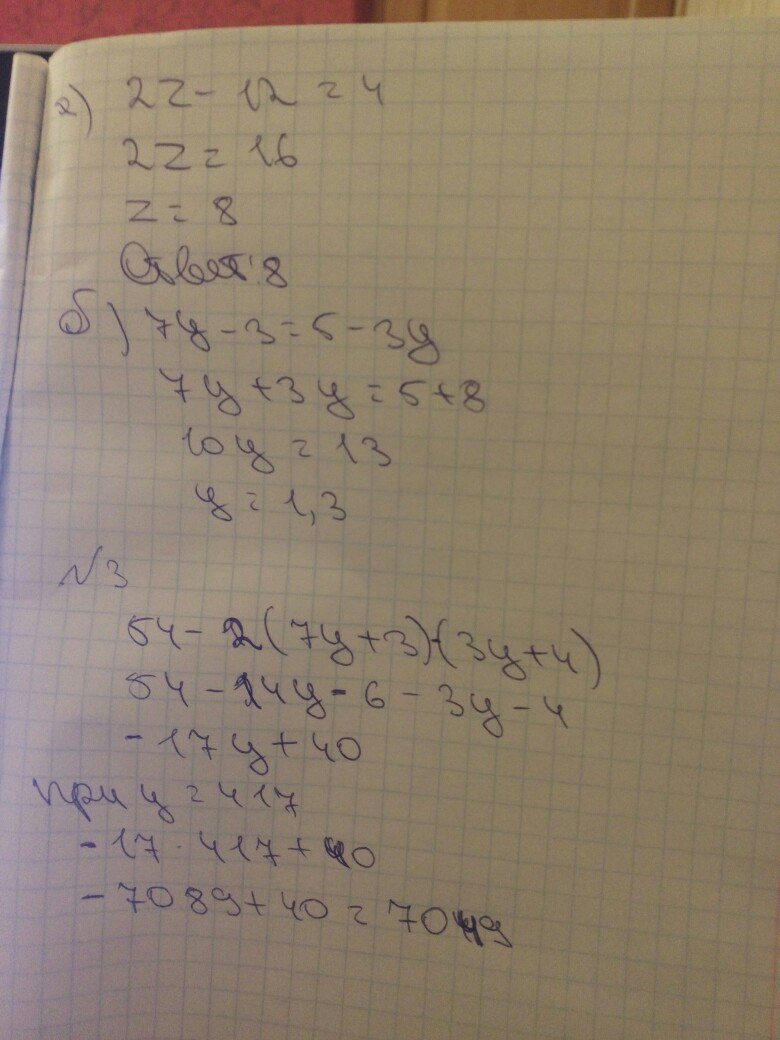 а) 2z - 12 = 4
2z = 16
z = 8
Ответ: 8
б) 7y - 3 = 5 - 3y
7y + 3y = 5 + 8
10y = 13
y = 1,3
№3
54 - 2(7y + 3) - (3y + 4)
54 - 14y - 6 - 3y - 4
- 17y + 40
при y = 417
- 17 · 417 + 40
- 7089 + 40 = 7049